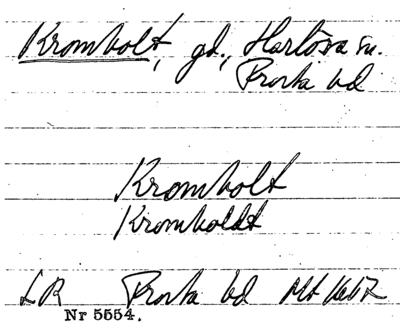 Krombolt, gd., Hartösa sn.
Frosta hd
Krombolt
Kromboldt
LR Frosta hd Ms 1667
Nr 5554.